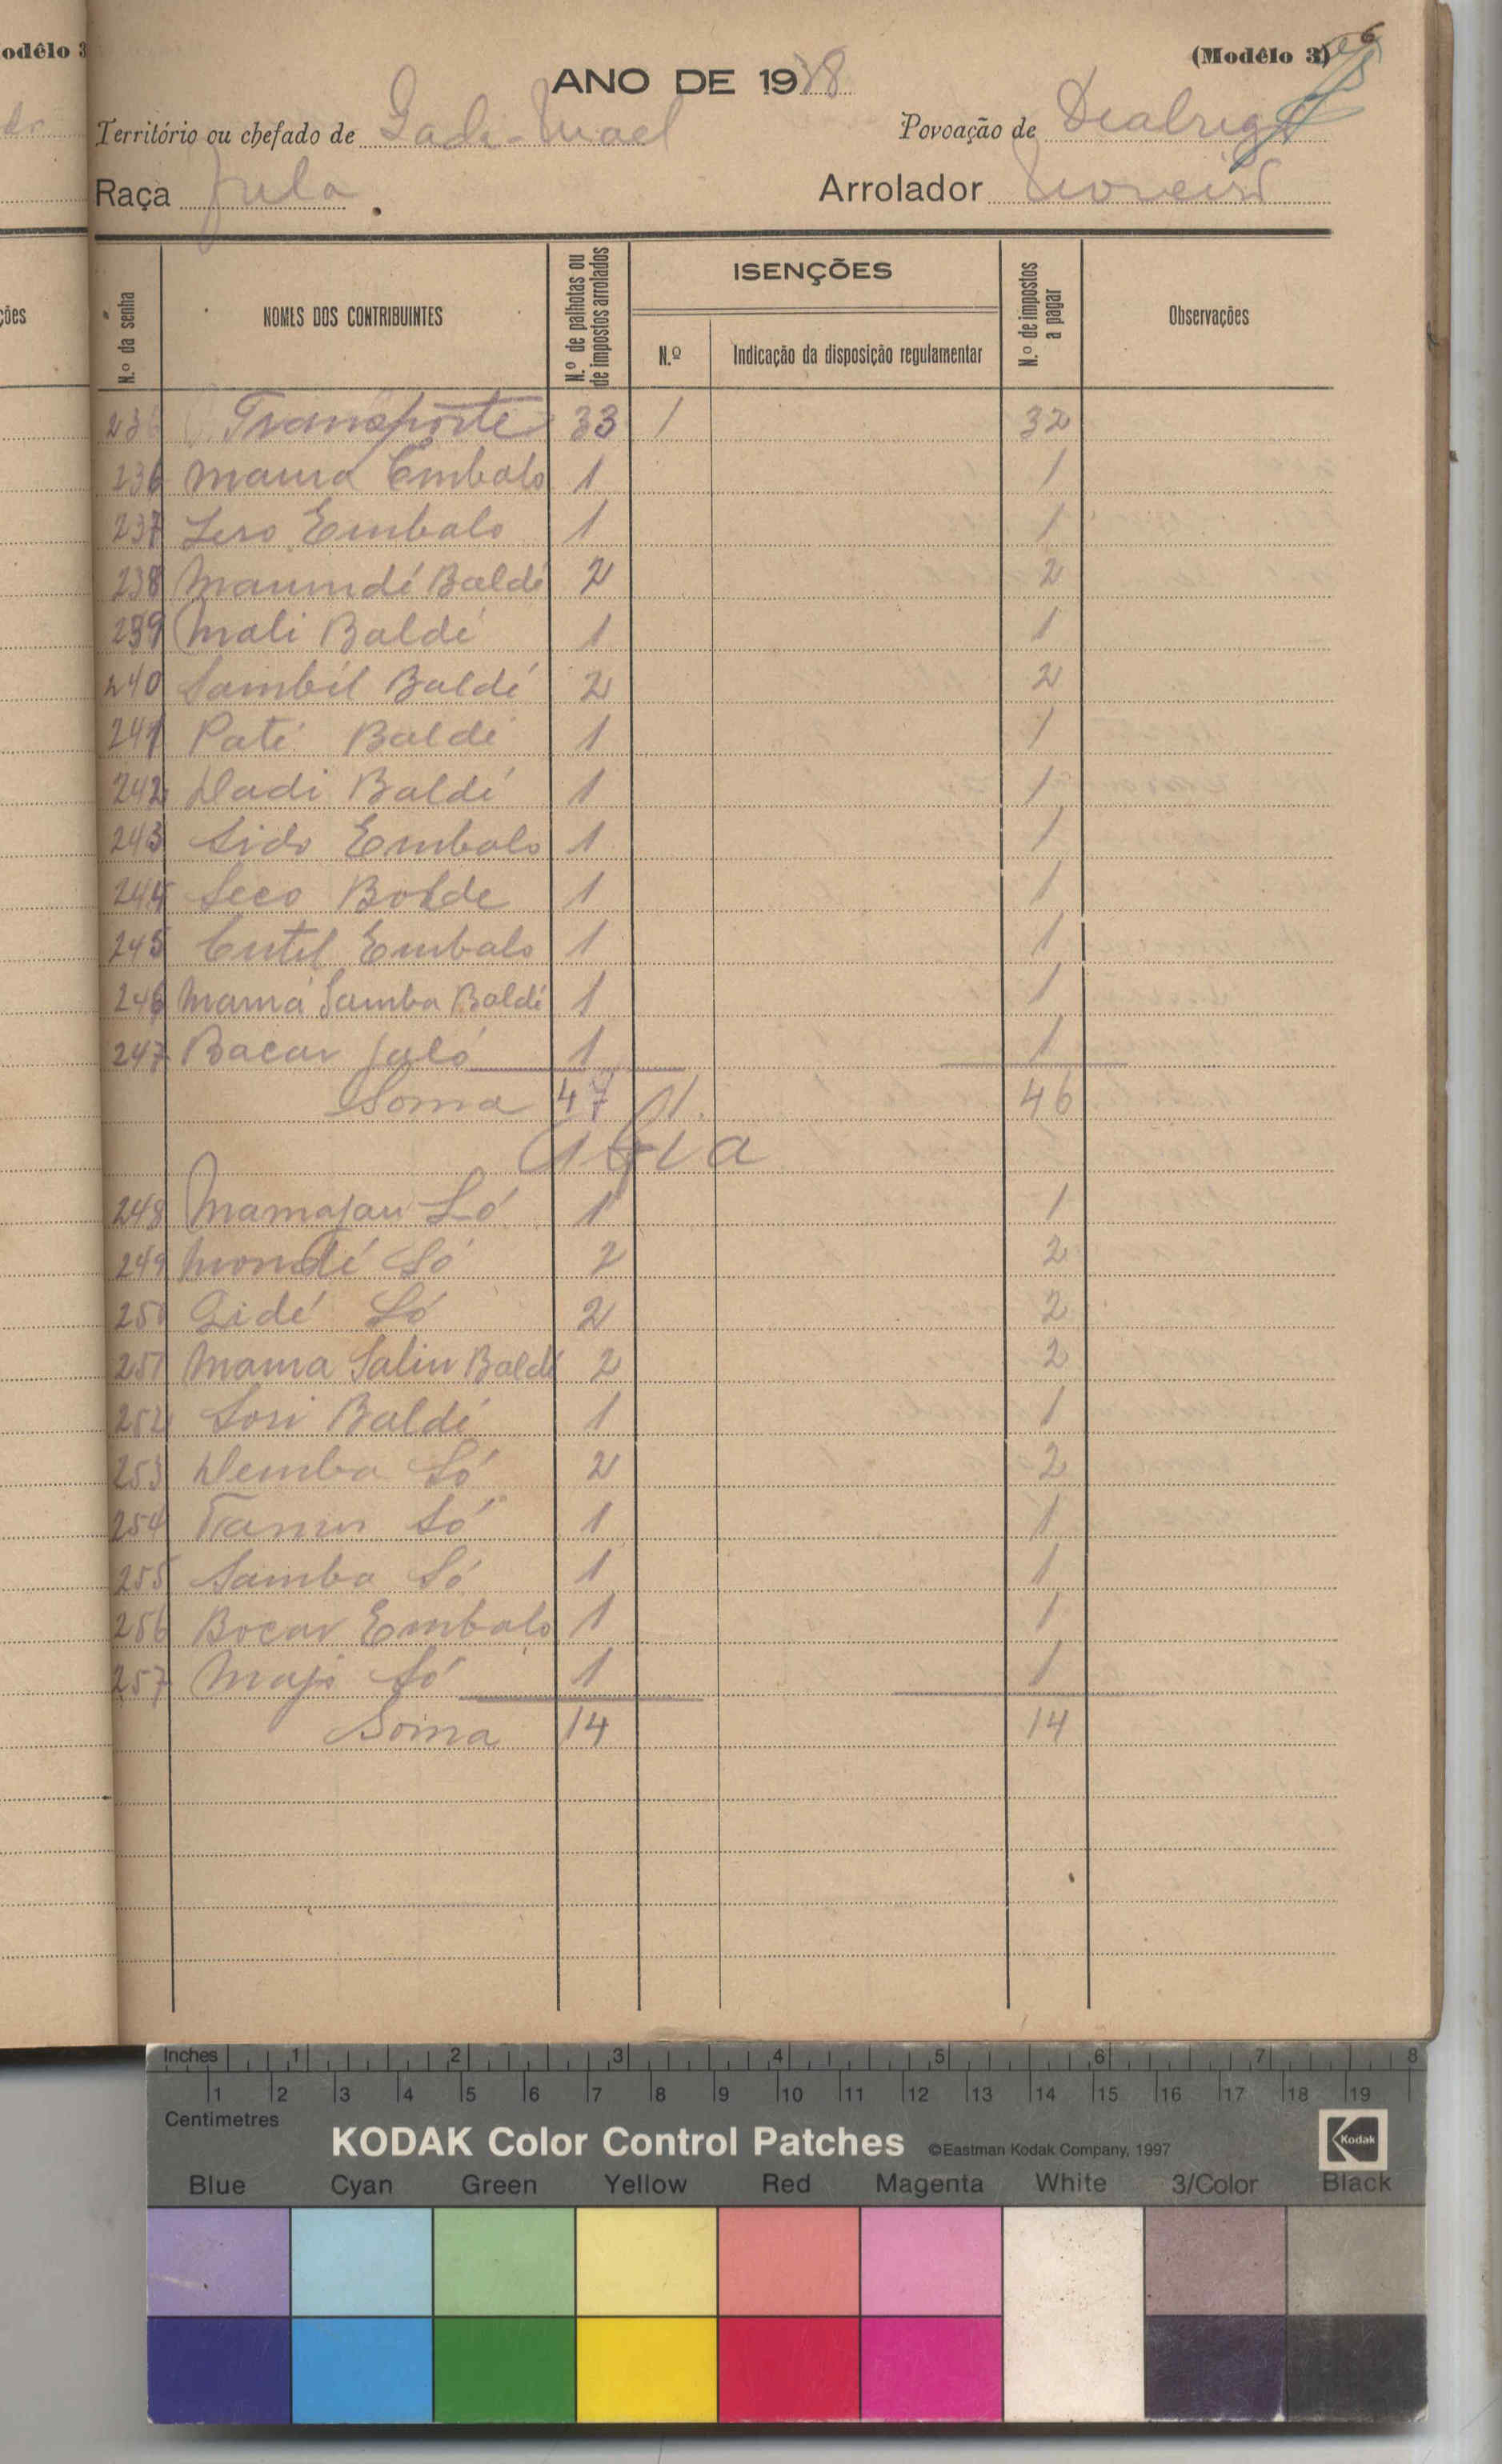 odêlo 3
ções
(Modêlo 3)
6
ANO DE 1938
Território ou chefado de Gadi-Mael Povoação de
Raça Fula Arrolador Moreira
N.º da senha NOMES DOS CONTRIBUINTES N.º de palhotas ou de impostos arrolados ISENÇÕES N.º de impostos a pagar Observações
N.º Indicação da disposição regulamentar
Transporte 33 1 32
236 Mama Embalo 1 1
237 Embalo 1 1
238 Maundé Baldé 2 2
239 Mali Baldé 1 1
240 Sambél Baldé 2 2
241 Paté Baldé 1 1
242 Dadi Baldé 1 1
243 Sido Embalo 1 1
244 Seco Bolde 1 1
245 Embalo 1 1
246 Mamá Samba Baldé 1 1
247 Bacar Jaló 1 1
Soma 47 1 46
248 Mamajan Só 1 1
249 Mondé Só 2 2
250 Gidé Só 2 2
251 Mama Saliu Baldé 2 2
252 Sori Baldé 1 1
253 Demba Só 2 2
254 Só 1 1
255 Samba Só 1 1
256 Bocar Embalo 1 1
257 Só 1 1
Soma 14 14
Inches 1 2 3 4 5 6 7 8
1 2 3 4 5 6 7 8 9 10 11 12 13 14 15 16 17 18 19
Centimetres
KODAK Color Control Patches ©Eastman Kodak Company, 1997 Kodak
Blue Cyan Green Yellow Red Magenta White 3/Color Black